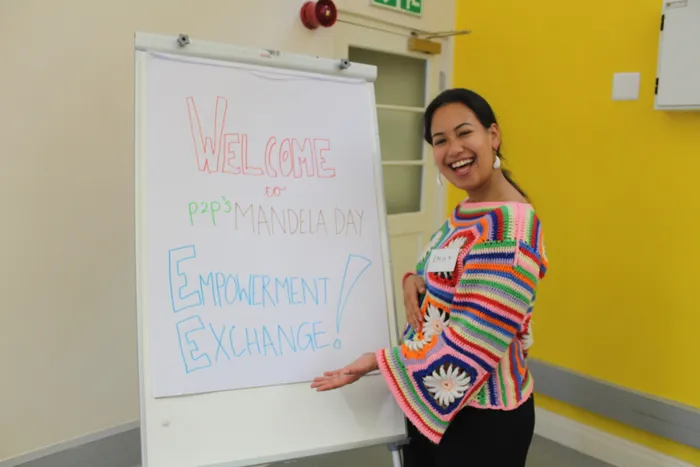 WELCOME
to
P2P's MANDELA DAY
EMPOWERMENT
EXCHANGE!